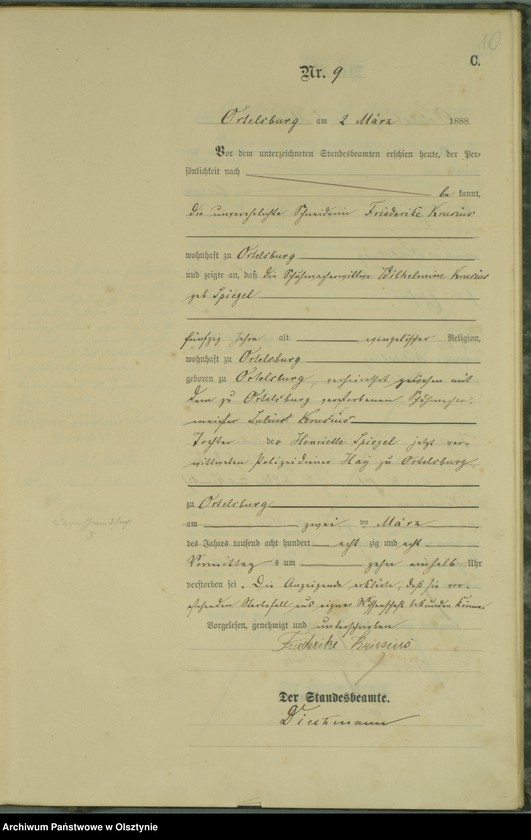 10
C.
Nr. 9
Ortelsburg am 2 März 1888.
Vor dem unterzeichneten Standesbeamten erschien heute, der Per-
sönlichkeit nach
be kannt,
die unverehelichte Schneiderin Friederike Krusius
wohnhaft zu Ortelsburg
und zeigte an, daß die Schuhmacherwittwe Wilhelmine Krusius
geb Spiegel
fünfzig Jahre alt evangelischer Religion,
wohnhaft zu Ortelsburg
geboren zu Ortelsburg, verheirathet gewesen mit
dem zu Ortelsburg verstorbenen Schuhmacher-
meister Julius Krusius
Tochter der Henriette Spiegel jetzt ver-
wittweten Polizeidiener Hay zu Ortelsburg,
zu Ortelsburg
am zwei ten März
des Jahres tausend acht hundert acht zig und acht
Vormittag s um zehn einhalb Uhr
verstorben sei. Die Anzeigende erklärte, daß sie vor-
stehenden Sterbefall aus eigner Wissenschaft bekunden könne.
Vorgelesen, genehmigt und unterschrieben
Friederike Krusius
Der Standesbeamte.
Archiwum Państwowe w Olsztynie